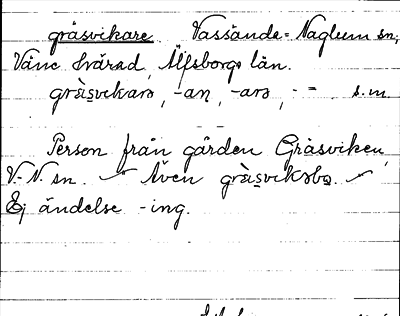 gräsvikare Vassände-Naglum sn,
Väne härad, Älfsborgs län.
grä̀svikarə, -aṇ, -arə, - = s.m
Person från gården Gräsviken,
V.-N. sn. Även grä̀sviksbə.
Ej ändelse -ing.